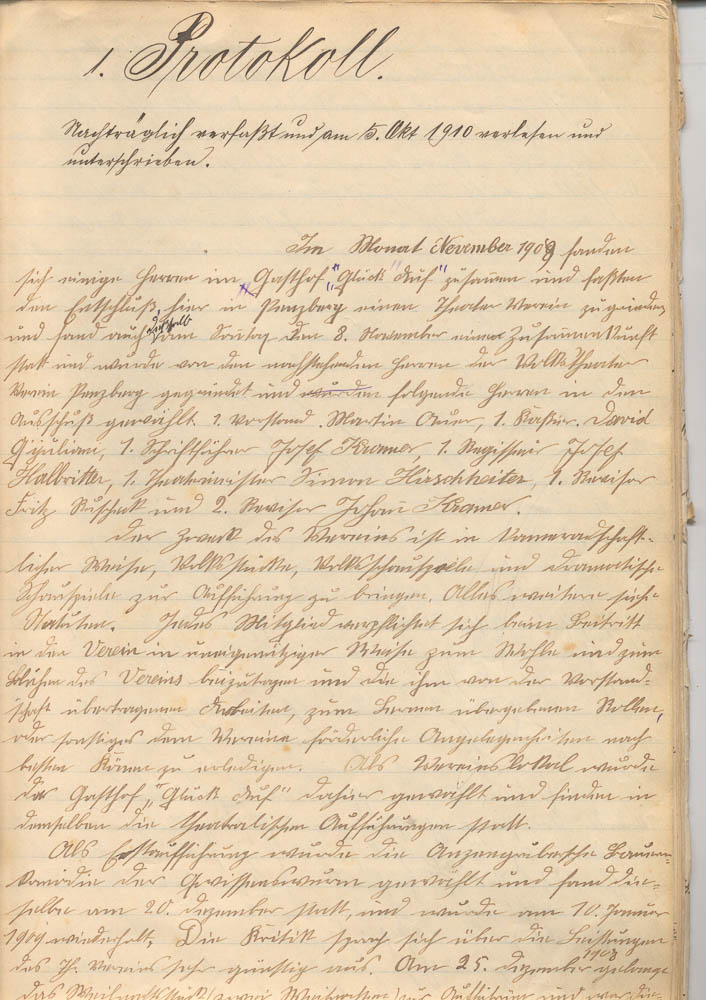 1. Protokoll.
Nachträglich verfaßt und am 5. Okt 1910 verlesen und
unterschrieben.
Im Monat November 1908 fanden
sich einige Herren im Gasthof „Glück Auf" zusammen und faßten
den Entschluß, hier in Penzberg einen Theater Verein zu gründen
und fand auch deshalb am Sonntag den 8. November eine Zusammenkunft
statt und wurde von den nachstehenden Herren der Volkstheater
Verein Penzberg gegründet und wurden folgende Herren in den
Ausschuß gewählt. 1. Vorstand Martin Auer, 1. Kassier David
Gijuliani, 1. Schriftführer Josef Kramer, 1. Regisseur Josef
Halbritter, 1. Theatermeister Simon Hirschheiter, 1. Revisor
Fritz und 2. Revisor Johann Kramer.
Der Zweck des Vereins ist in kameradschaft-
licher Weise, Volksstücke, Volksschauspiele und dramatische
Schauspiele zur Aufführung zu bringen. Alles weitere siehe
Statuten. Jedes Mitglied verpflichtet sich beim Beitritt
in den Verein in uneigennütziger Weise zum Wohle und zum
Blühen des Vereins beizutragen und die ihm von der Vorstand-
schaft übertragenen Arbeiten, zum Lernen übergebenen Rollen,
oder sonstiges dem Vereine förderliche Angelegenheiten nach
besten Können zu erledigen. Als Vereinslokal wurde
das Gasthof „Glück Auf" dahier gewählt und finden in
demselben die theatralischen Aufführungen statt.
Als Erstaufführung wurde die Anzengrubersche Bauern-
komödie der Gwissenswurm gewählt und fand die-
selbe am 20. Dezember statt, und wurde am 10. Januar
1909 wiederholt. Die Kritik sprach sich über die Leistungen
des Th. Vereins sehr günstig aus. Am 25. Dezember 1908 gelangte
das Weihnachtsstück (zwei Weihnachten) zur Aufführung und war die-